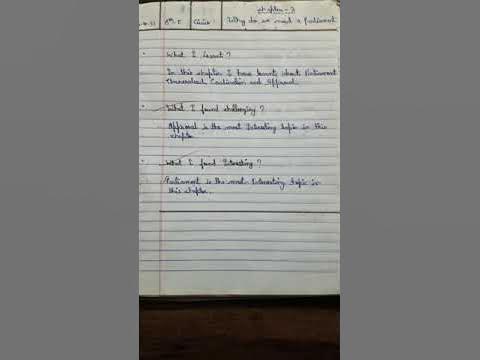 Chapter - 3
8th E Civics Why do we need a Parliament
What I learnt ?
In this chapter I have learnt about Parliament
and Approval
What I found challenging ?
Approval is the most Interesting topic in this
chapter
What I found Interesting ?
Parliament is the most Interesting topic in
this chapter.